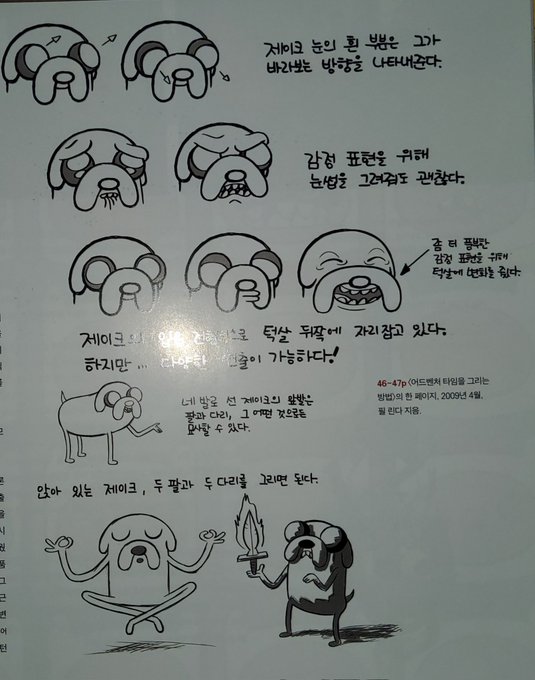 제이크 눈의 흰 부분은 그가
바라보는 방향을 나타내준다.
감정 표현을 위해
눈썹을 그려줘도 괜찮다.
좀 더 풍부한
감정 표현을 위해
턱살에 변화를 준다.
제이크의 턱살 뒤쪽에 자리잡고 있다.
하지만... 가능하다!
네 발로 선 제이크의 앞발은
팔과 다리, 그 어떤 것으로든
묘사할 수 있다.
46~47p 〈어드벤처 타임을 그리는
방법〉의 한 페이지, 2009년 4월,
필 린다 지음.
앉아 있는 제이크, 두 팔과 두 다리를 그리면 된다.